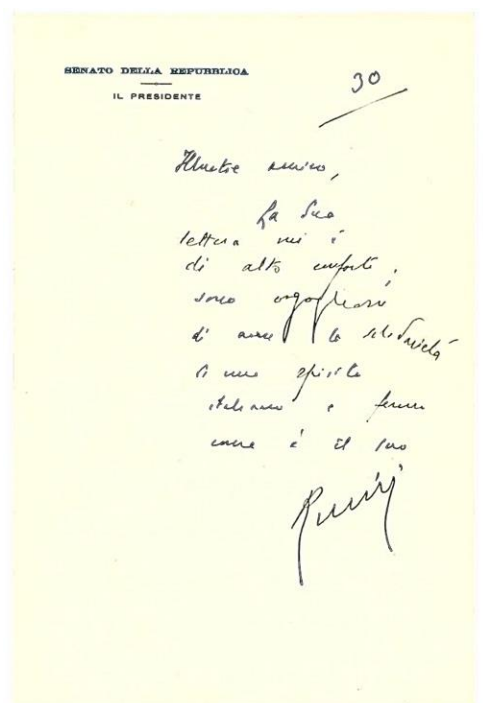 SENATO DELLA REPUBBLICA
IL PRESIDENTE
30
Illustre amico,
La Sua
lettera mi è
di alto conforto,
sono orgoglioso
di avere la solidarietà
di uno spirito
italiano e fermo
come è il suo